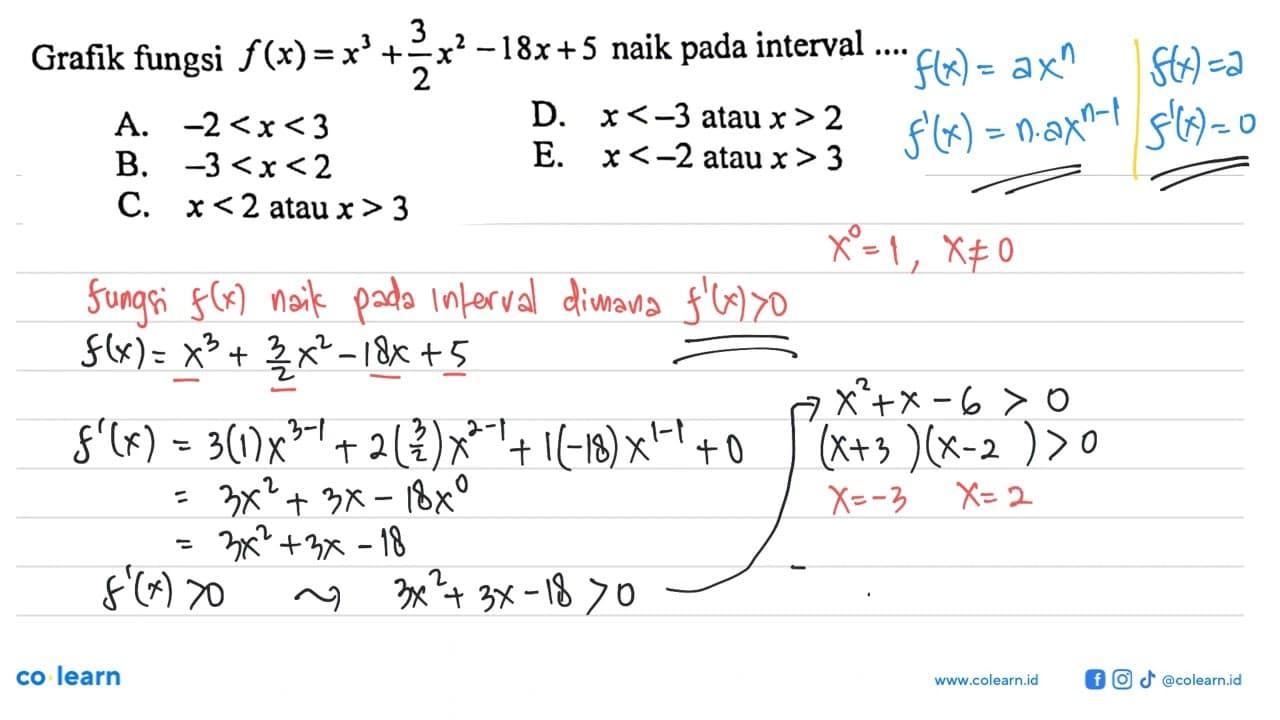 Grafik fungsi f(x) = x³ + 3/2 x² − 18x + 5 naik pada interval ....
A. −2 < x < 3
B. −3 < x < 2
C. x < 2 atau x > 3
D. x < −3 atau x > 2
E. x < −2 atau x > 3
f(x) = ax^n
f'(x) = n.ax^(n-1)
f(x) = a
f'(x) = 0
x⁰ = 1, x ≠ 0
fungsi f(x) naik pada interval dimana f'(x) > 0
f(x) = x³ + 3/2 x² − 18x + 5
f'(x) = 3(1)x^(3-1) + 2(3/2)x^(2-1) + 1(−18)x^(1-1) + 0
= 3x² + 3x − 18x⁰
= 3x² + 3x − 18
f'(x) > 0 ⇝ 3x² + 3x − 18 > 0
→ x² + x − 6 > 0
(x+3)(x−2) > 0
x = −3 x = 2
co learn
www.colearn.id
@colearn.id